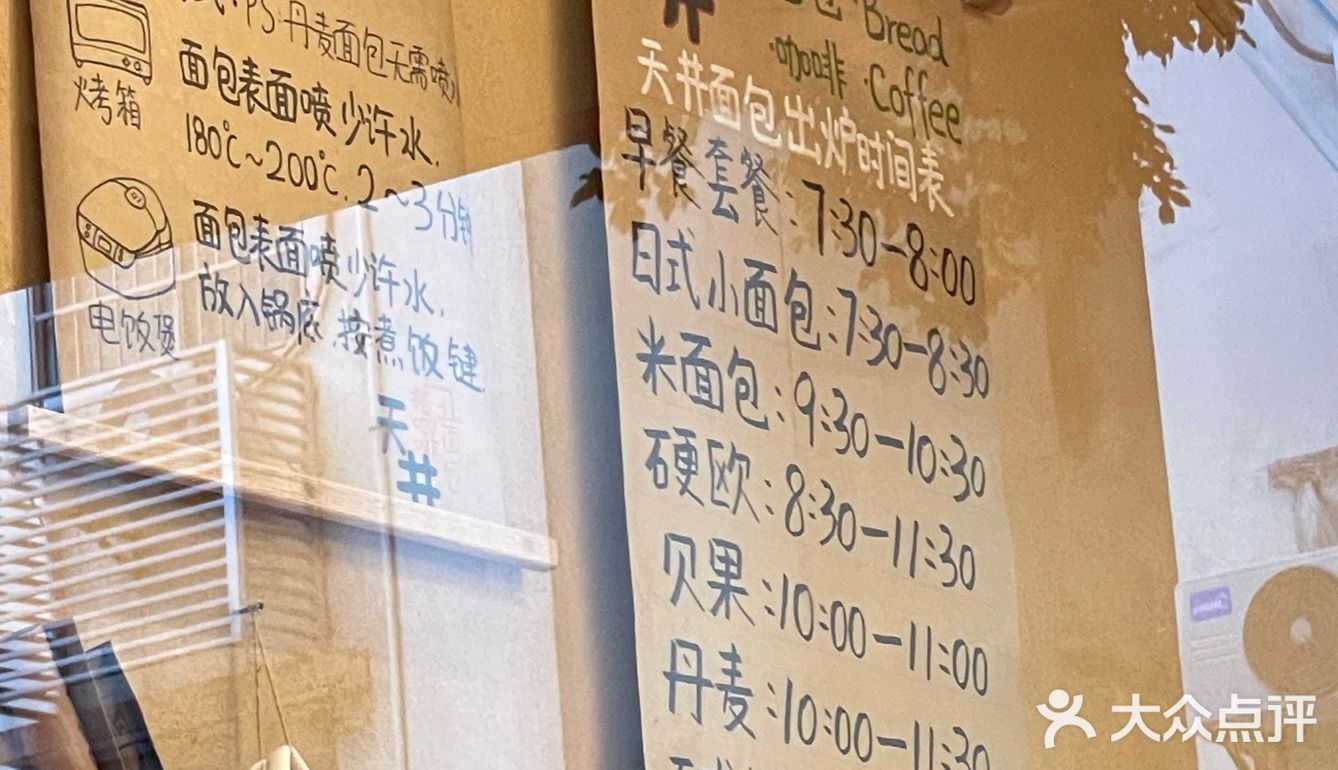 PS:丹麦面包无需喷
烤箱
面包表面喷少许水,
180℃~200℃.2~3分钟
电饭煲
面包表面喷少许水,
放入锅底.按煮饭键
天井
·Bread
·咖啡·Coffee
天井面包出炉时间表
早餐套餐:7:30-8:00
日式小面包:7:30-8:30
米面包:9:30-10:30
硬欧:8:30-11:30
贝果:10:00-11:00
丹麦:10:00-11:30
大众点评